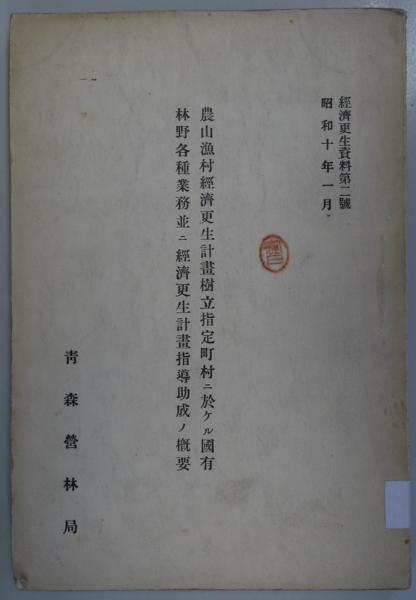 經濟更生資料第二號
昭和十年一月
農山漁村經濟更生計畫樹立指定町村ニ於ケル國有
林野各種業務並ニ經濟更生計畫指導助成ノ概要
青森營林局